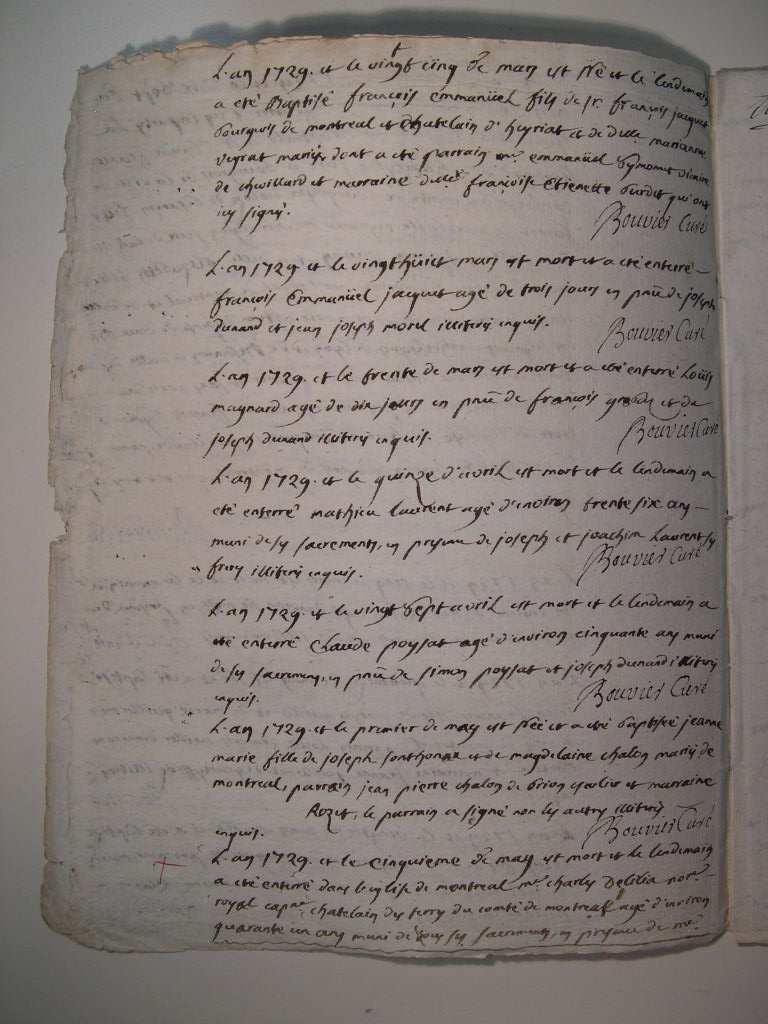 L'an 1729. et le vingt cinq de mars est née et le lendemain
a eté Baptisé françois emmanüel fils de sr. françois jacquet
bourgois de montreal et chatelain d'heyriat et de dlle marianne
veyrat mariés dont a eté parrain mr. emmanüel
de et marraine dlle françoise Etienette burdet qui ont
icy signé. Bouvier Curé
L.an 1729 et le vingthüict mars est mort et a eté enterré
françois Emmanüel jacquet agé de trois jours en pnce de joseph
dunand et jean joseph morel illiterés enquis. Bouvier Curé
L.an 1729. et le trente de mars est mort et a eté enterré Loüis
maynard agé de dix jours en pnce de françois et de
joseph dunand illiterés enquis. Bouvier Curé
L.an 1729. et le quinze d'avril est mort et le lendemain a
eté enterré mathieu laurent agé d'environ trente six ans
muni de ses sacrements, en presence de joseph et joachim Laurent ses
freres illiterés enquis. Bouvier Curé
L.an 1729. et le vingt sept avril est mort et le lendemain a
eté enterré Claude poysat agé d'environ cinquante ans muni
de ses sacremens, en pnce de simon poysat et joseph dunand illiterés
enquis. Bouvier Curé
L.an 1729. et le premier de may est née et a eté baptisée jeanne
marie fille de joseph sonthonna et de magdelaine chalon mariés de
montreal, parrain jean pierre chalon de brion et marraine
Rozet, le parrain a signé non les autres illiterés
enquis. Bouvier Curé
L.an 1729. et le cinquieme de may est mort et le lendemain
a eté enterré dans leglise de montreal mre. charles Delilia nore.
royal capne. chatelain des terres du comté de montreal agé d'environ
quarante un ans muni de tous ses sacremens, en presence de mre.